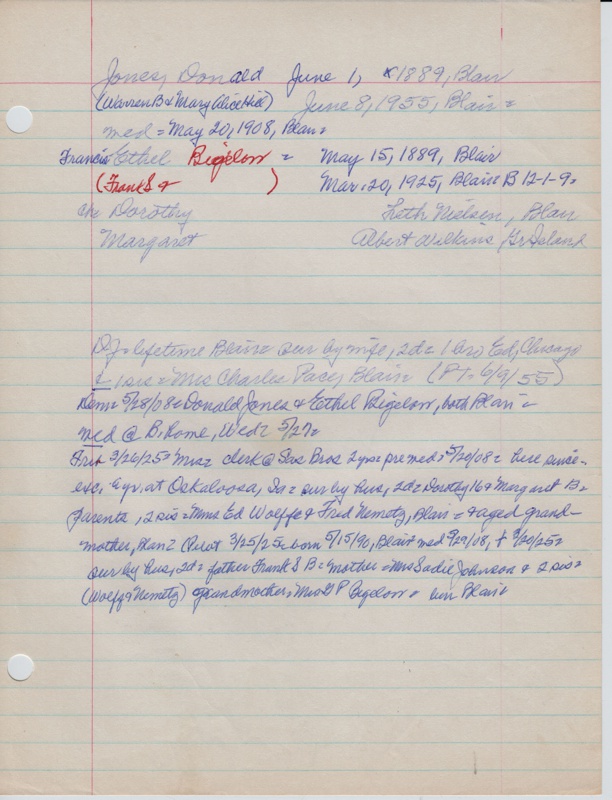 Jones, Donald June 1, 1889, Blair
(Warren B & Mary Alice Hill) June 8, 1955, Blair =
med = May 20, 1908, Blair =
Francis Ethel Bigelow = May 15, 1889, Blair
(Frank S & ) Mar. 20, 1925, Blair = B 12-1-9 =
ch: Dorothy Leth Nielsen, Blair
Margaret Albert Wilkins, Gr Island
DJ = lifetime Blair = sur by wife, 2d = 1 bro Ed, Chicago
& 1 sis = Mrs Charles Pacey Blair = (PT = 6/9/55)
Dem = 5/28/08 = Donald Jones & Ethel Bigelow, both Blair =
med @ B. home, Wed = 5/27 =
Trib 3/26/25 = Mrs = clerk @ Bros 2 yrs = pre med = 5/20/08 = here since =
exc. yr. at Oskaloosa, Ia = sur by hus, 2d = Dorothy 16 & Margaret 13 =
parents, 2 sis = Mmes Ed Wolff & Fred Nemetz, Blair = & aged grand-
mother, 3/25/25 = born 5/15/90, Blair = med 9/29/08, † 3/20/25 =
sur by hus, 2d = father Frank S B = mother = Mrs Sadie Johnson & 2 sis =
(Wolff & Nemetz) grandmother = Mrs G P Bigelow = Blair =